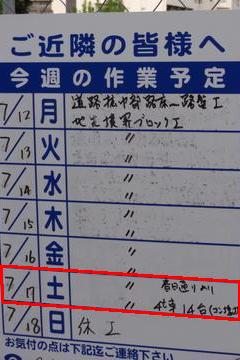 ご近隣の皆様へ
今週の作業予定
7/12 月 道路拡中部路床〜路盤工
地先境界ブロック工
7/13 火 〃
7/14 水 〃
7/15 木 〃
7/16 金 〃
7/17 土 〃 春日通り
〃 14台
7/18 日 休工
お気付の点は下記迄ご連絡下さい